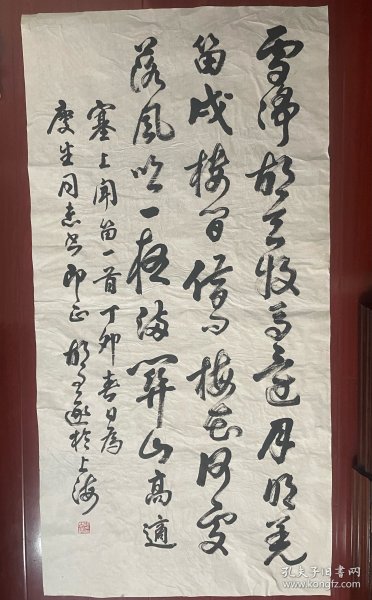 雪净胡天牧马还月明羌
笛戍楼间借问梅花何处
落风吹一夜满关山高適
塞上闻笛一首丁卯春日为
庆生同志书即正胡问遂於上海
孔夫子旧书网
www.kongfz.com